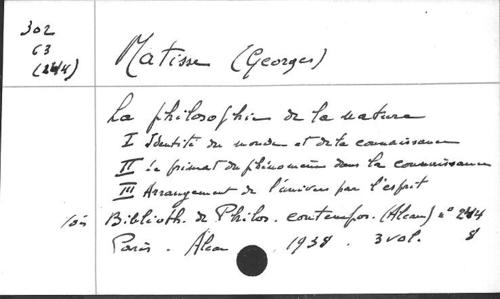 302
63
(244)
Matisse (Georges)
La philosophie de la nature
I Identité du monde et de la connaissance
II Le primat du phénomène dans la connaissance
III Arrangement de l'univers par l'esprit
Biblioth. de Philos. contempor. (Alcan) n° 244
Paris. Alcan 1938. 3 vol. 8